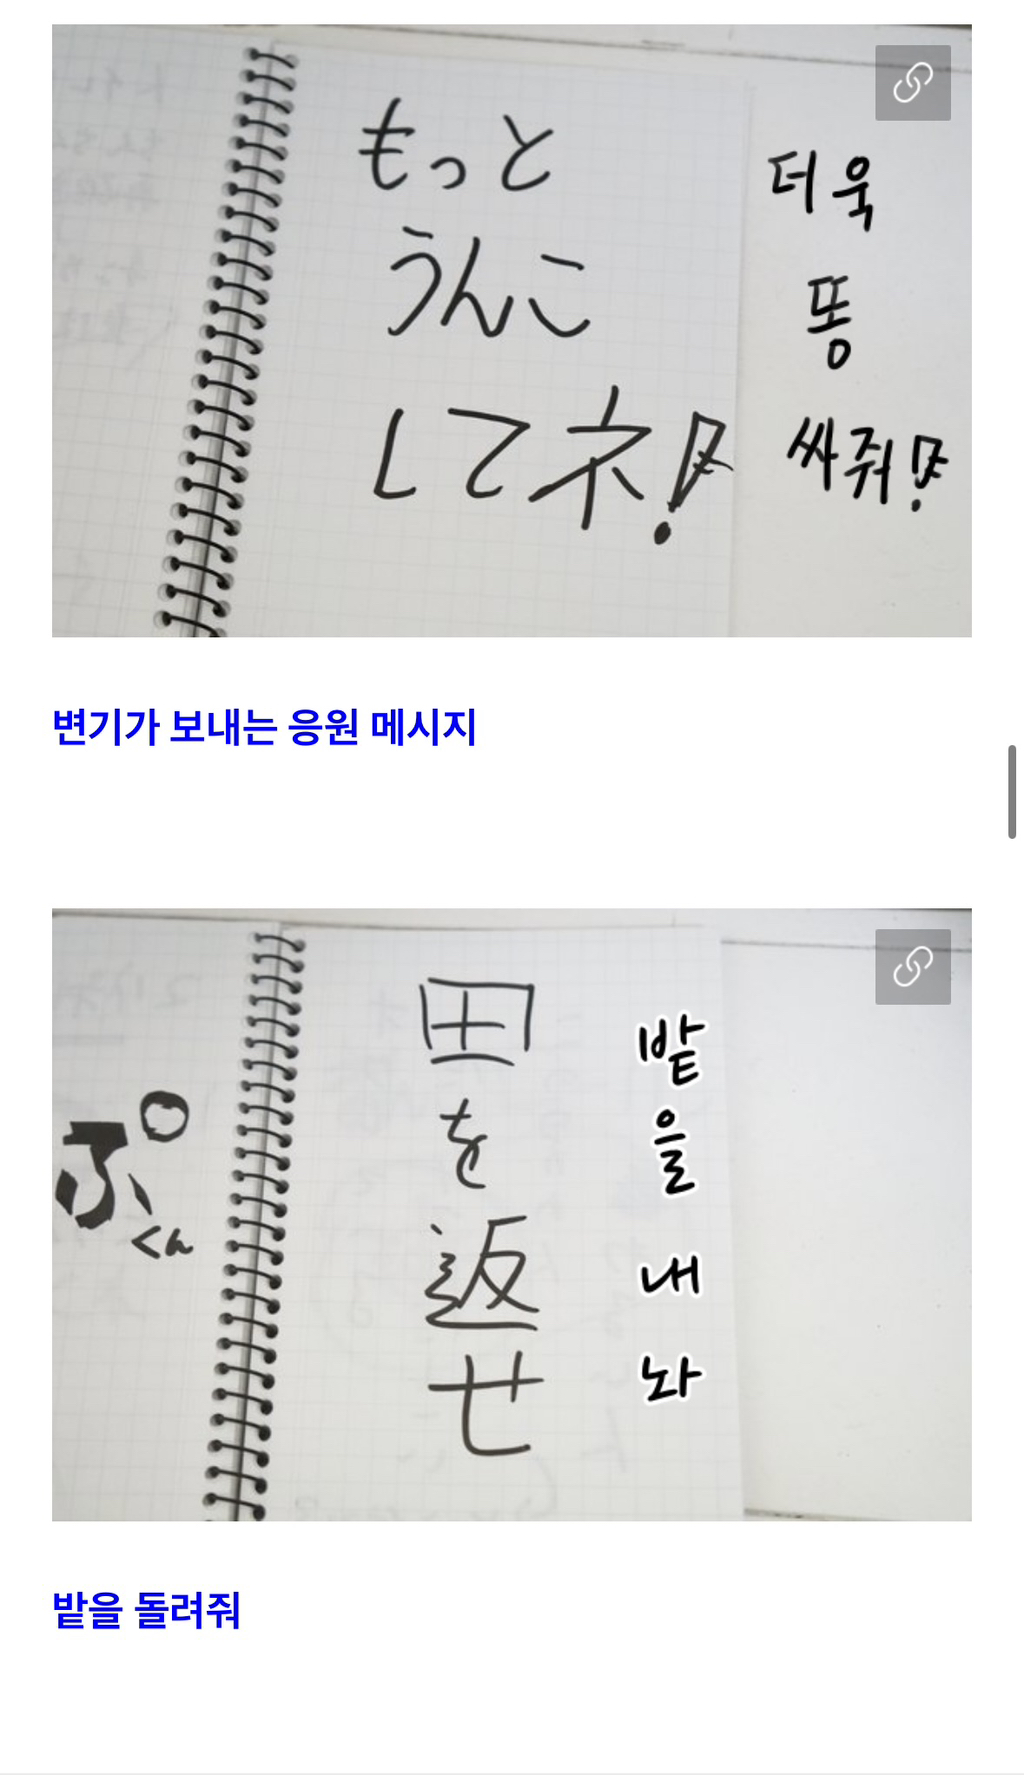 もっと
うんこ
してネ!
더욱
똥
싸줘!
변기가 보내는 응원 메시지
ぷ
くん
田を返せ
밭을 내놔
밭을 돌려줘